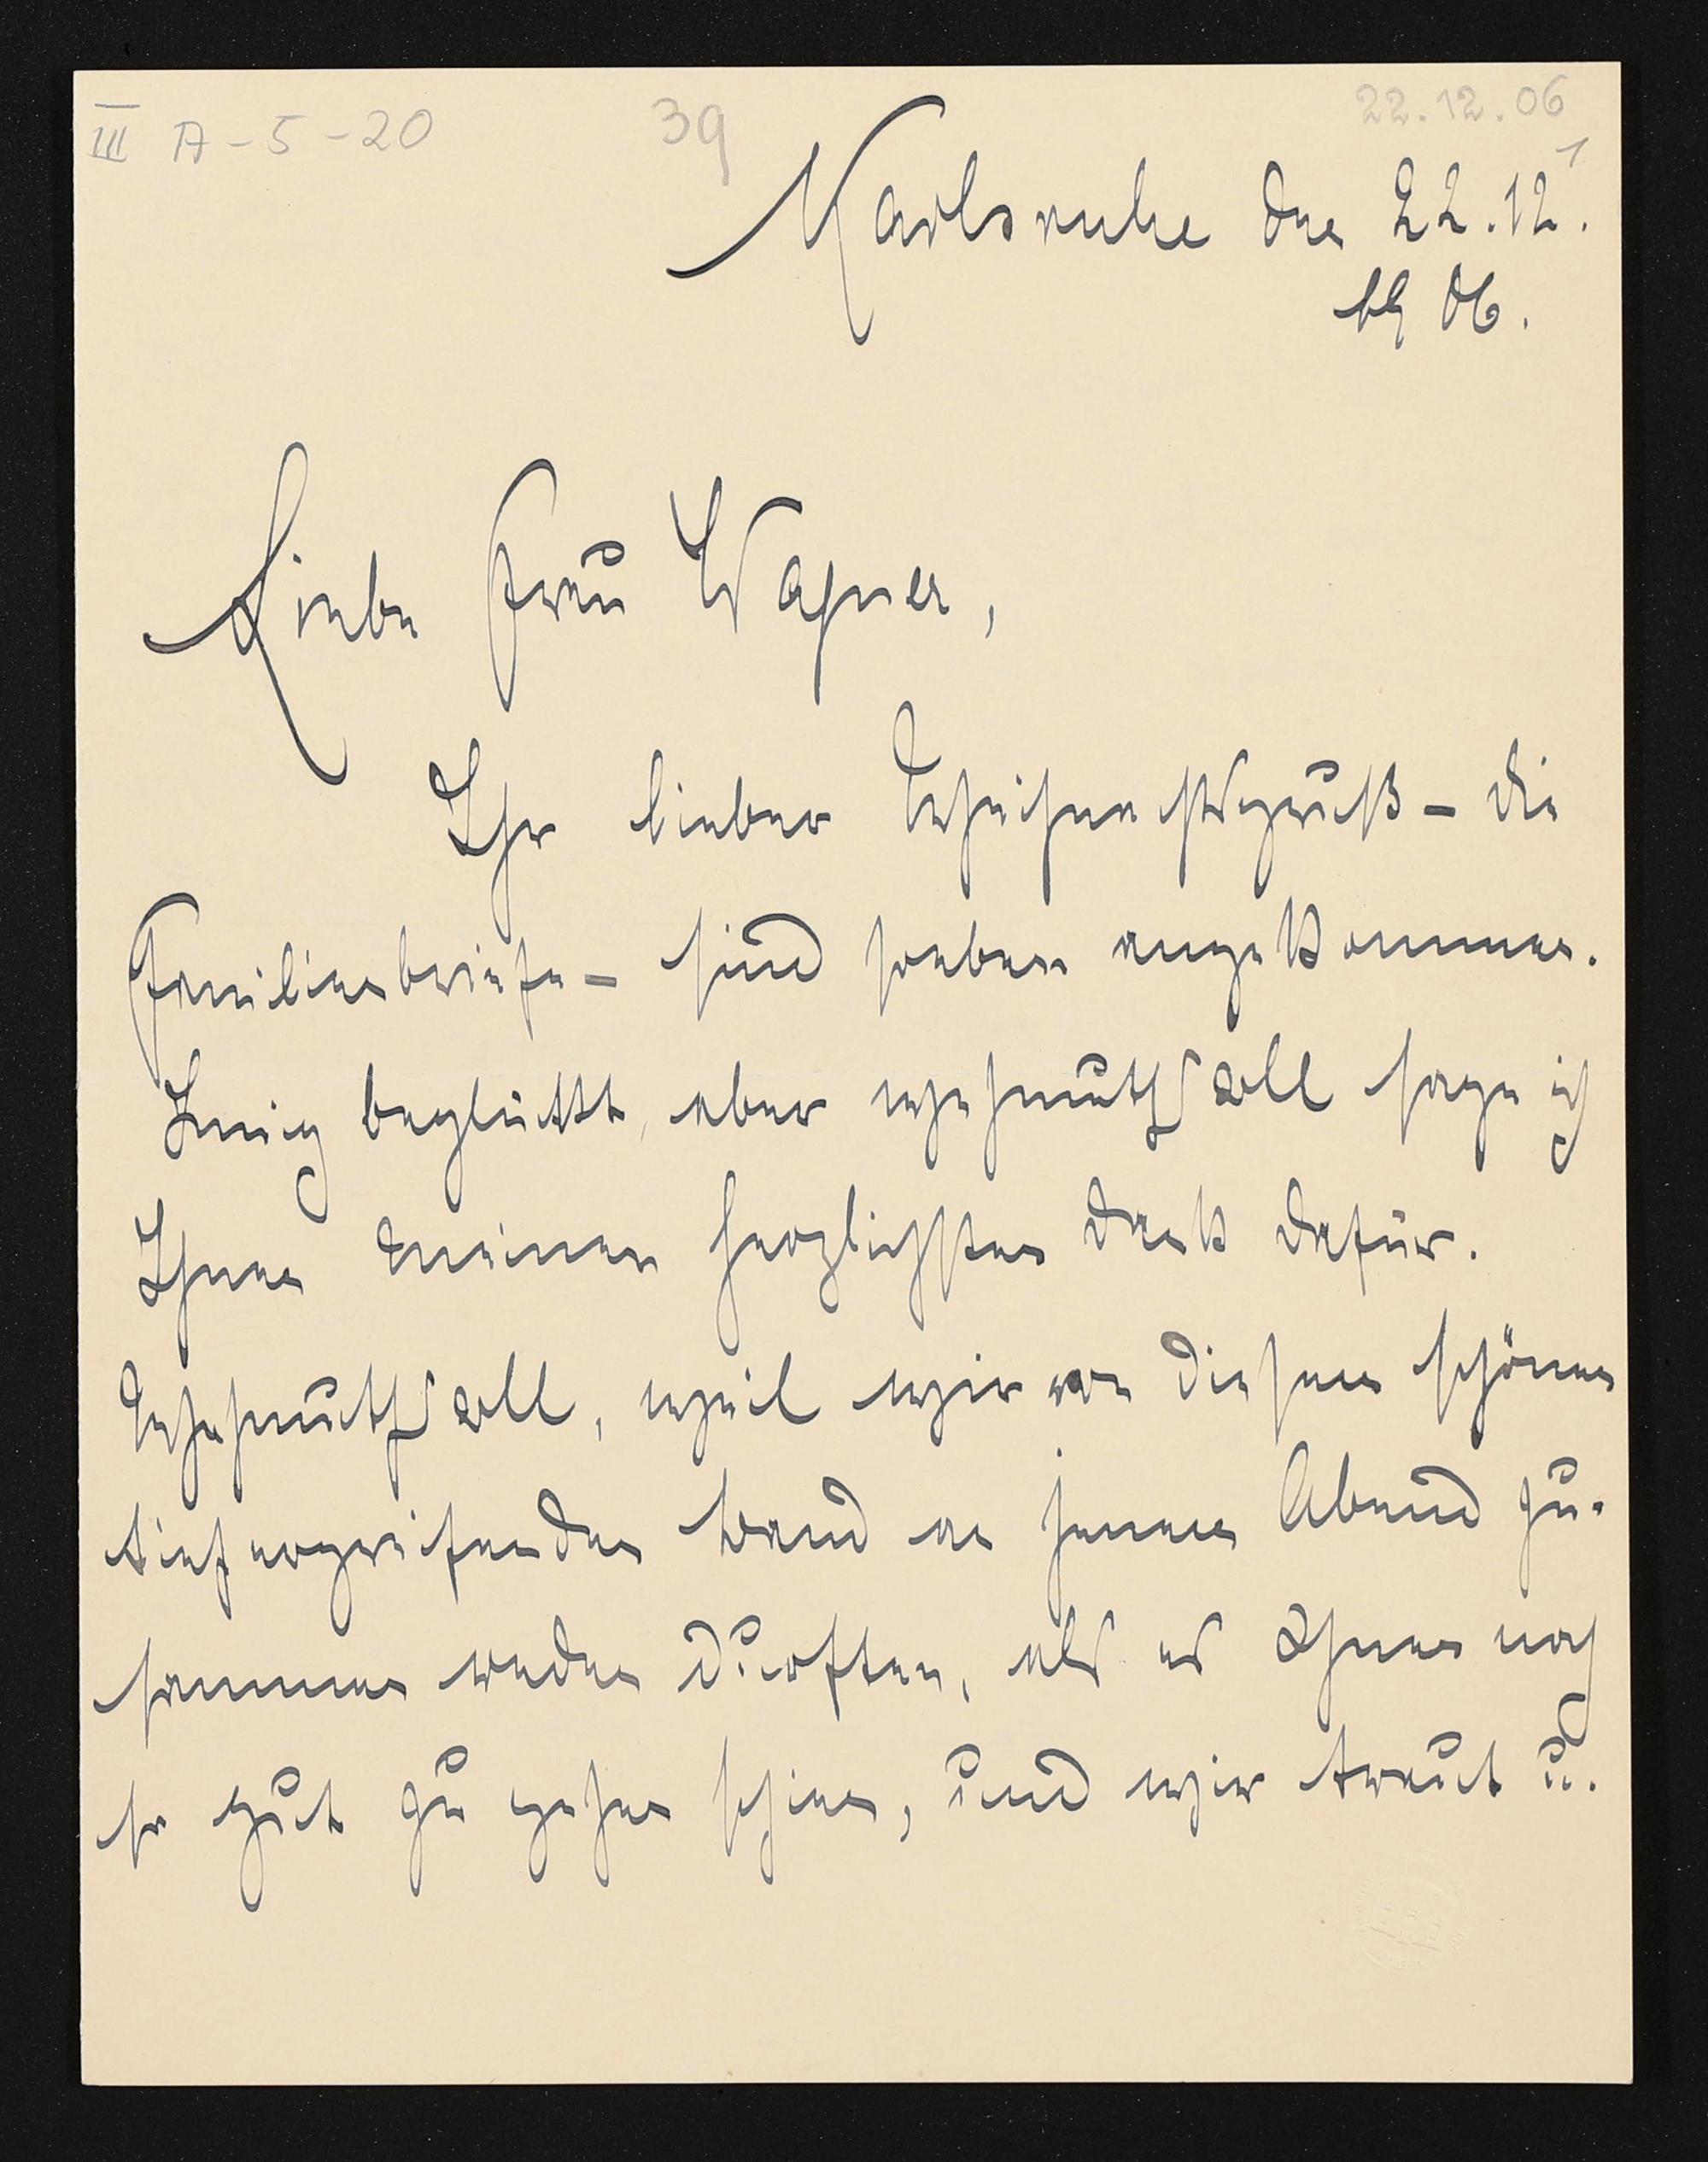 III A-5-20 39 22.12.06
1
Karlsruhe den 22.12.
1906.
Liebe Frau Wagner,
Ihr lieber Weihnachtsgruß – die
Familienbriefe – sind soeben angekommen.
Innig beglückt, aber wehmuthsvoll sage ich
Ihnen meinen herzlichsten Dank dafür.
Wehmuthsvoll, weil wir von diesem schönen
tief ergreifenden Band an jenem Abend zu-
sammen reden durften, als es Ihnen noch
so gut zu gehen schien, und wir traut u.